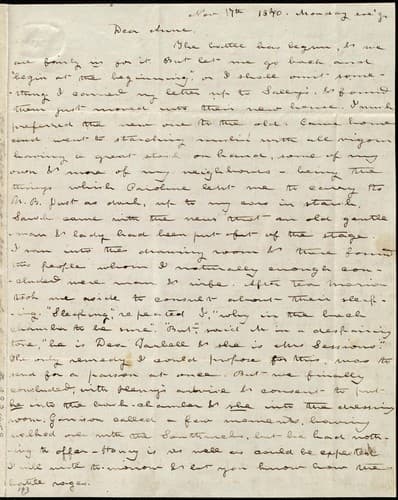 Nov 17th 1840. Monday eve'g.
Dear Anne.
The battle has begun, & we
are fairly in for it. But let me go back and
"begin at the beginning", or I shall omit some-
thing. I carried my letter up to Sally's. & found
them just moved into their new house. I much
preferred the new one to the old. Came home
and went to starching muslin with all vigour
having a great stock on hand, some of my
own & more of my neighbors - being the
things which Caroline left me to carry to
B. B. Just as dark, up to my ears in starch,
Sarah came with the news that an old gentle-
man & lady had been put off of the stage
I ran into the drawing room & there found
two people whom I naturally enough con-
cluded were man & wife. After tea Maria
took me aside to consult about their sleep-
ing. "Sleeping" repeated I, "why in the back
chamber to be sure." "But", said M in a despairing
tone, "he is Dea Tarbell & she is Mrs Sessions"
The only remedy I could propose for this, was to
send for a parson at once. But we finally
concluded, with Henry's advice & consent to put
he into the back-chamber & she into the dressing
room. Garrison called a few moments, having
walked over with the Southwicks, but he had noth-
ing to offer - Henry is as well as could be expected
I will write to-morrow & let you know how the
battle rages.